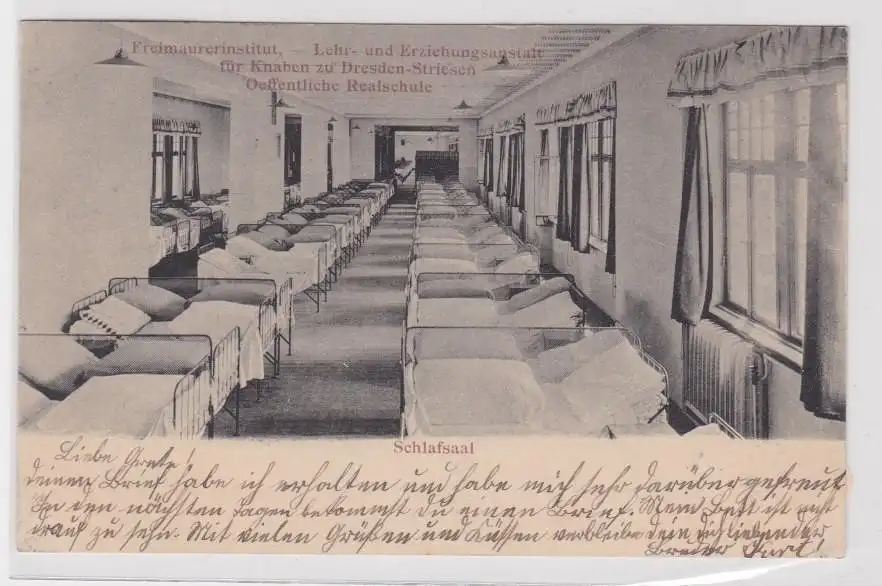 Freimaurerinstitut, — Lehr- und Erziehungsanstalt
für Knaben zu Dresden-Striesen
Oeffentliche Realschule
Schlafsaal
Liebe Grete!
deinen Brief habe ich erhalten und habe mich sehr darüber gefreut
In den nächsten Tagen bekommst du einen Brief. Mein Bett ist mit
drauf zu sehn. Mit vielen Grüßen und Küssen verbleibe dein dich liebender
Bruder Curt!